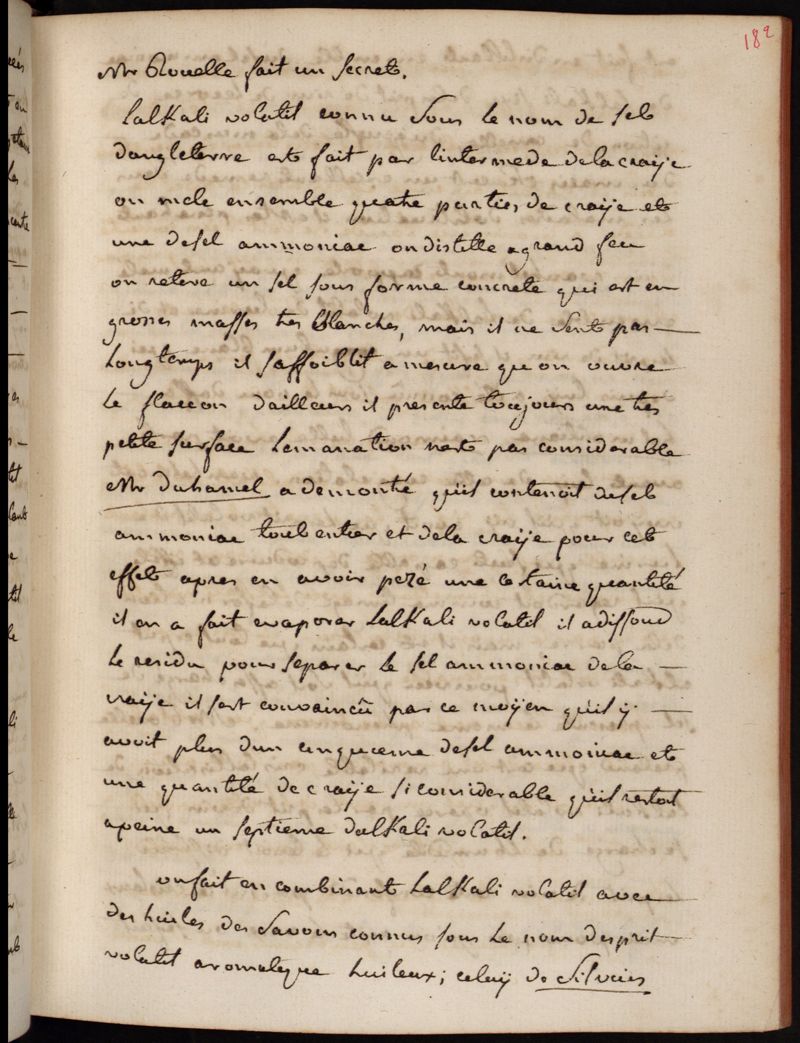 182
Mr Rouelle fait un secret.
Lalkali volatil connu sous le nom de sel
dangleterre est fait par lintermede de la craije
on mele ensemble quatre parties de craije et
une de sel ammoniac on distille a grand feu
on retire un sel sous forme concrete qui est en
grosses masses tres blanches, mais il ne sent pas
longtemps il saffoiblit a mesure qu on ouvre
le flaccon dailleurs il presente toujours une tres
petite surface lemanation nest pas considerable
Mr Duhamel a demontré quil contenoit de sel
ammoniac tout entier et de la craije pour cet
effet apres en avoir pezé une certaine quantité
il en a fait evaporer lalkali volatil il a dissoud
le residu pour separer le sel ammoniac de la
craije il sest convaincû par ce moÿen quil ÿ
avoit plus dun cinquieme de sel ammoniac et
une quantité de craije si considerable quil restoit
a peine un septieme dalkali volatil.
on fait en combinant lalkali volatil avec
des huiles des savons connus sous le nom desprit
volatil aromatique huileux; celuÿ de Silvius